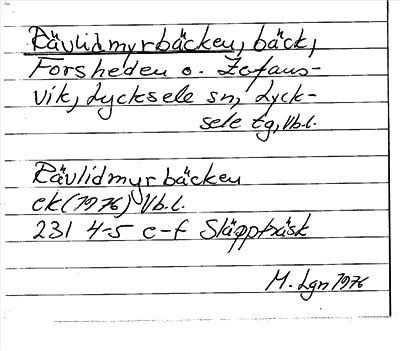 Rävlidmyrbäcken, bäck,
Forsheden o. Zofans-
vik, Lycksele sn, Lyck-
sele tg, Vb.l.
Rävlidmyrbäcken
ek (1976) Vb.l.
231 4-5 e-f Släppträsk
M. Lgn 1976